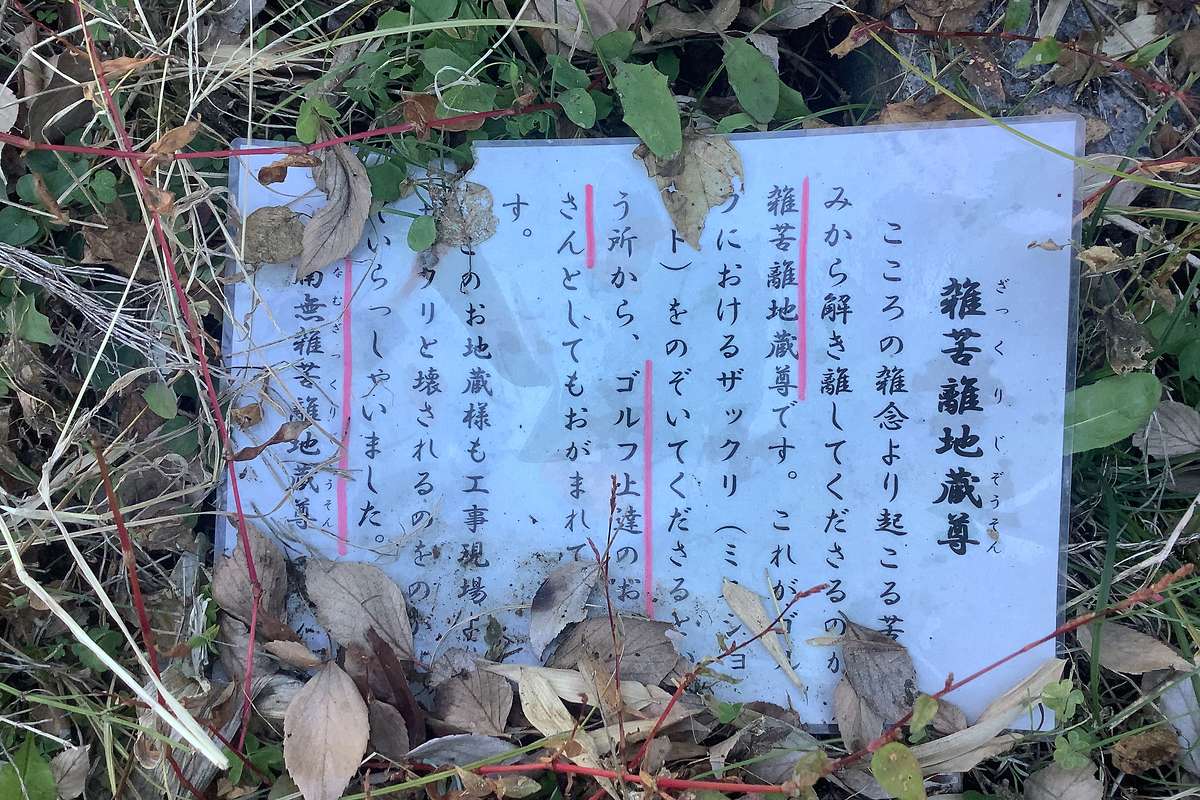 雑苦離地蔵尊
ざっくりじぞうそん
こころの雑念より起こる苦
みから解き離してくださるのが
雑苦離地蔵尊です。これがゴル
フにおけるザックリ（ミスショ
ト）をのぞいてくださると
う所から、ゴルフ上達のお
さんとしてもおがまれて
す。
このお地蔵様も工事現場
クリと壊されるのをの
いらっしゃいました。
南無雑苦離地蔵尊
なむざっくり うそん